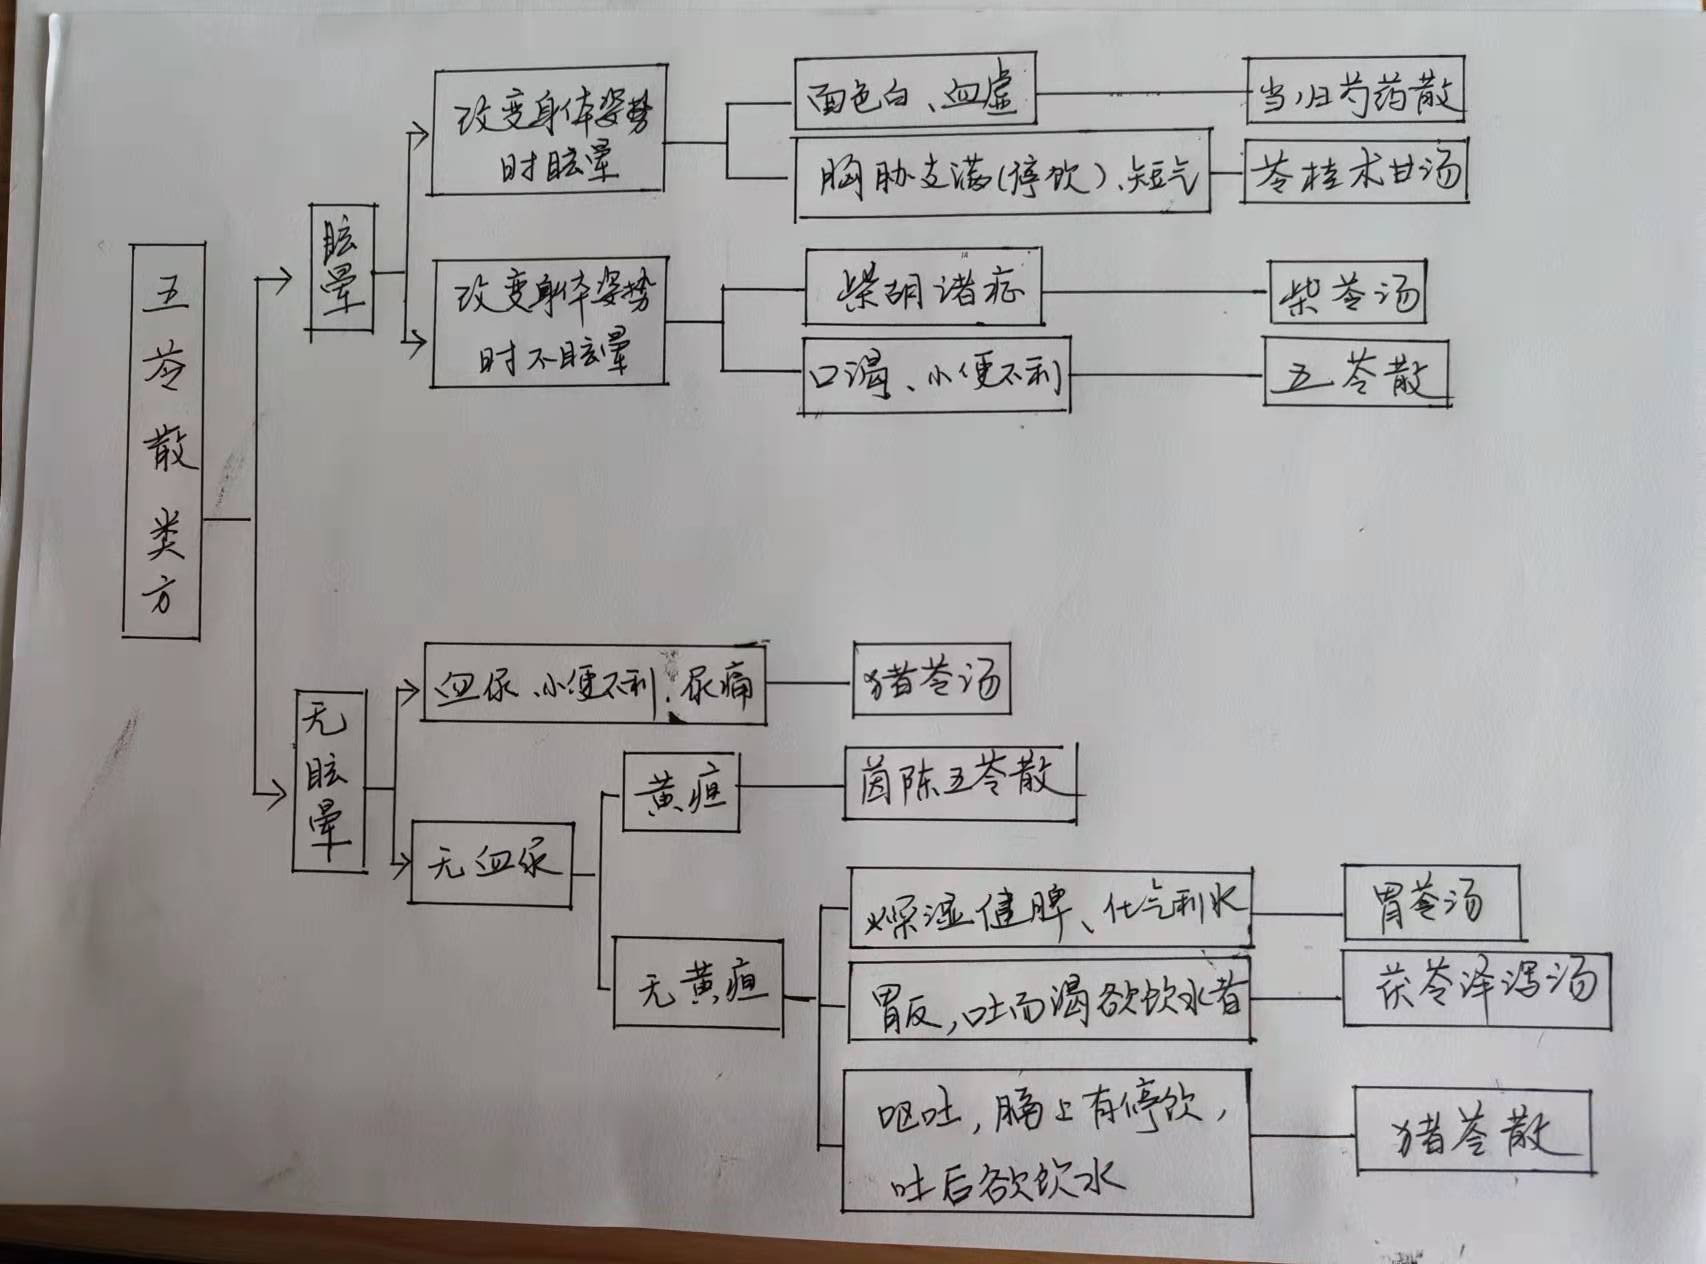 五苓散类方
眩晕
改变身体姿势
时眩晕
面色白、血虚
当归芍药散
胸胁支满(停饮)、短气
苓桂术甘汤
改变身体姿势
时不眩晕
柴胡诸症
柴苓汤
口渴、小便不利
五苓散
无眩晕
血尿、小便不利、尿痛
猪苓汤
无血尿
黄疸
茵陈五苓散
无黄疸
燥湿健脾、化气利水
胃苓汤
胃反,吐而渴欲饮水者
茯苓泽泻汤
呕吐,膈上有停饮,
吐后欲饮水
猪苓散